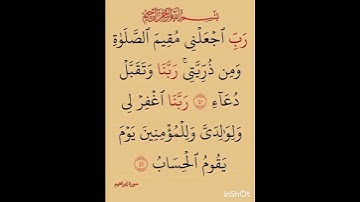 بِسْمِ اللَّهِ الرَّحْمَٰنِ الرَّحِيمِ
رَبِّ ٱجْعَلْنِى مُقِيمَ ٱلصَّلَوٰةِ
وَمِن ذُرِّيَّتِى ۚ رَبَّنَا وَتَقَبَّلْ
دُعَآءِ ۝٤٠ رَبَّنَا ٱغْفِرْ لِى
وَلِوَٰلِدَىَّ وَلِلْمُؤْمِنِينَ يَوْمَ
يَقُومُ ٱلْحِسَابُ ۝٤١
سورة إبراهيم
InShOt